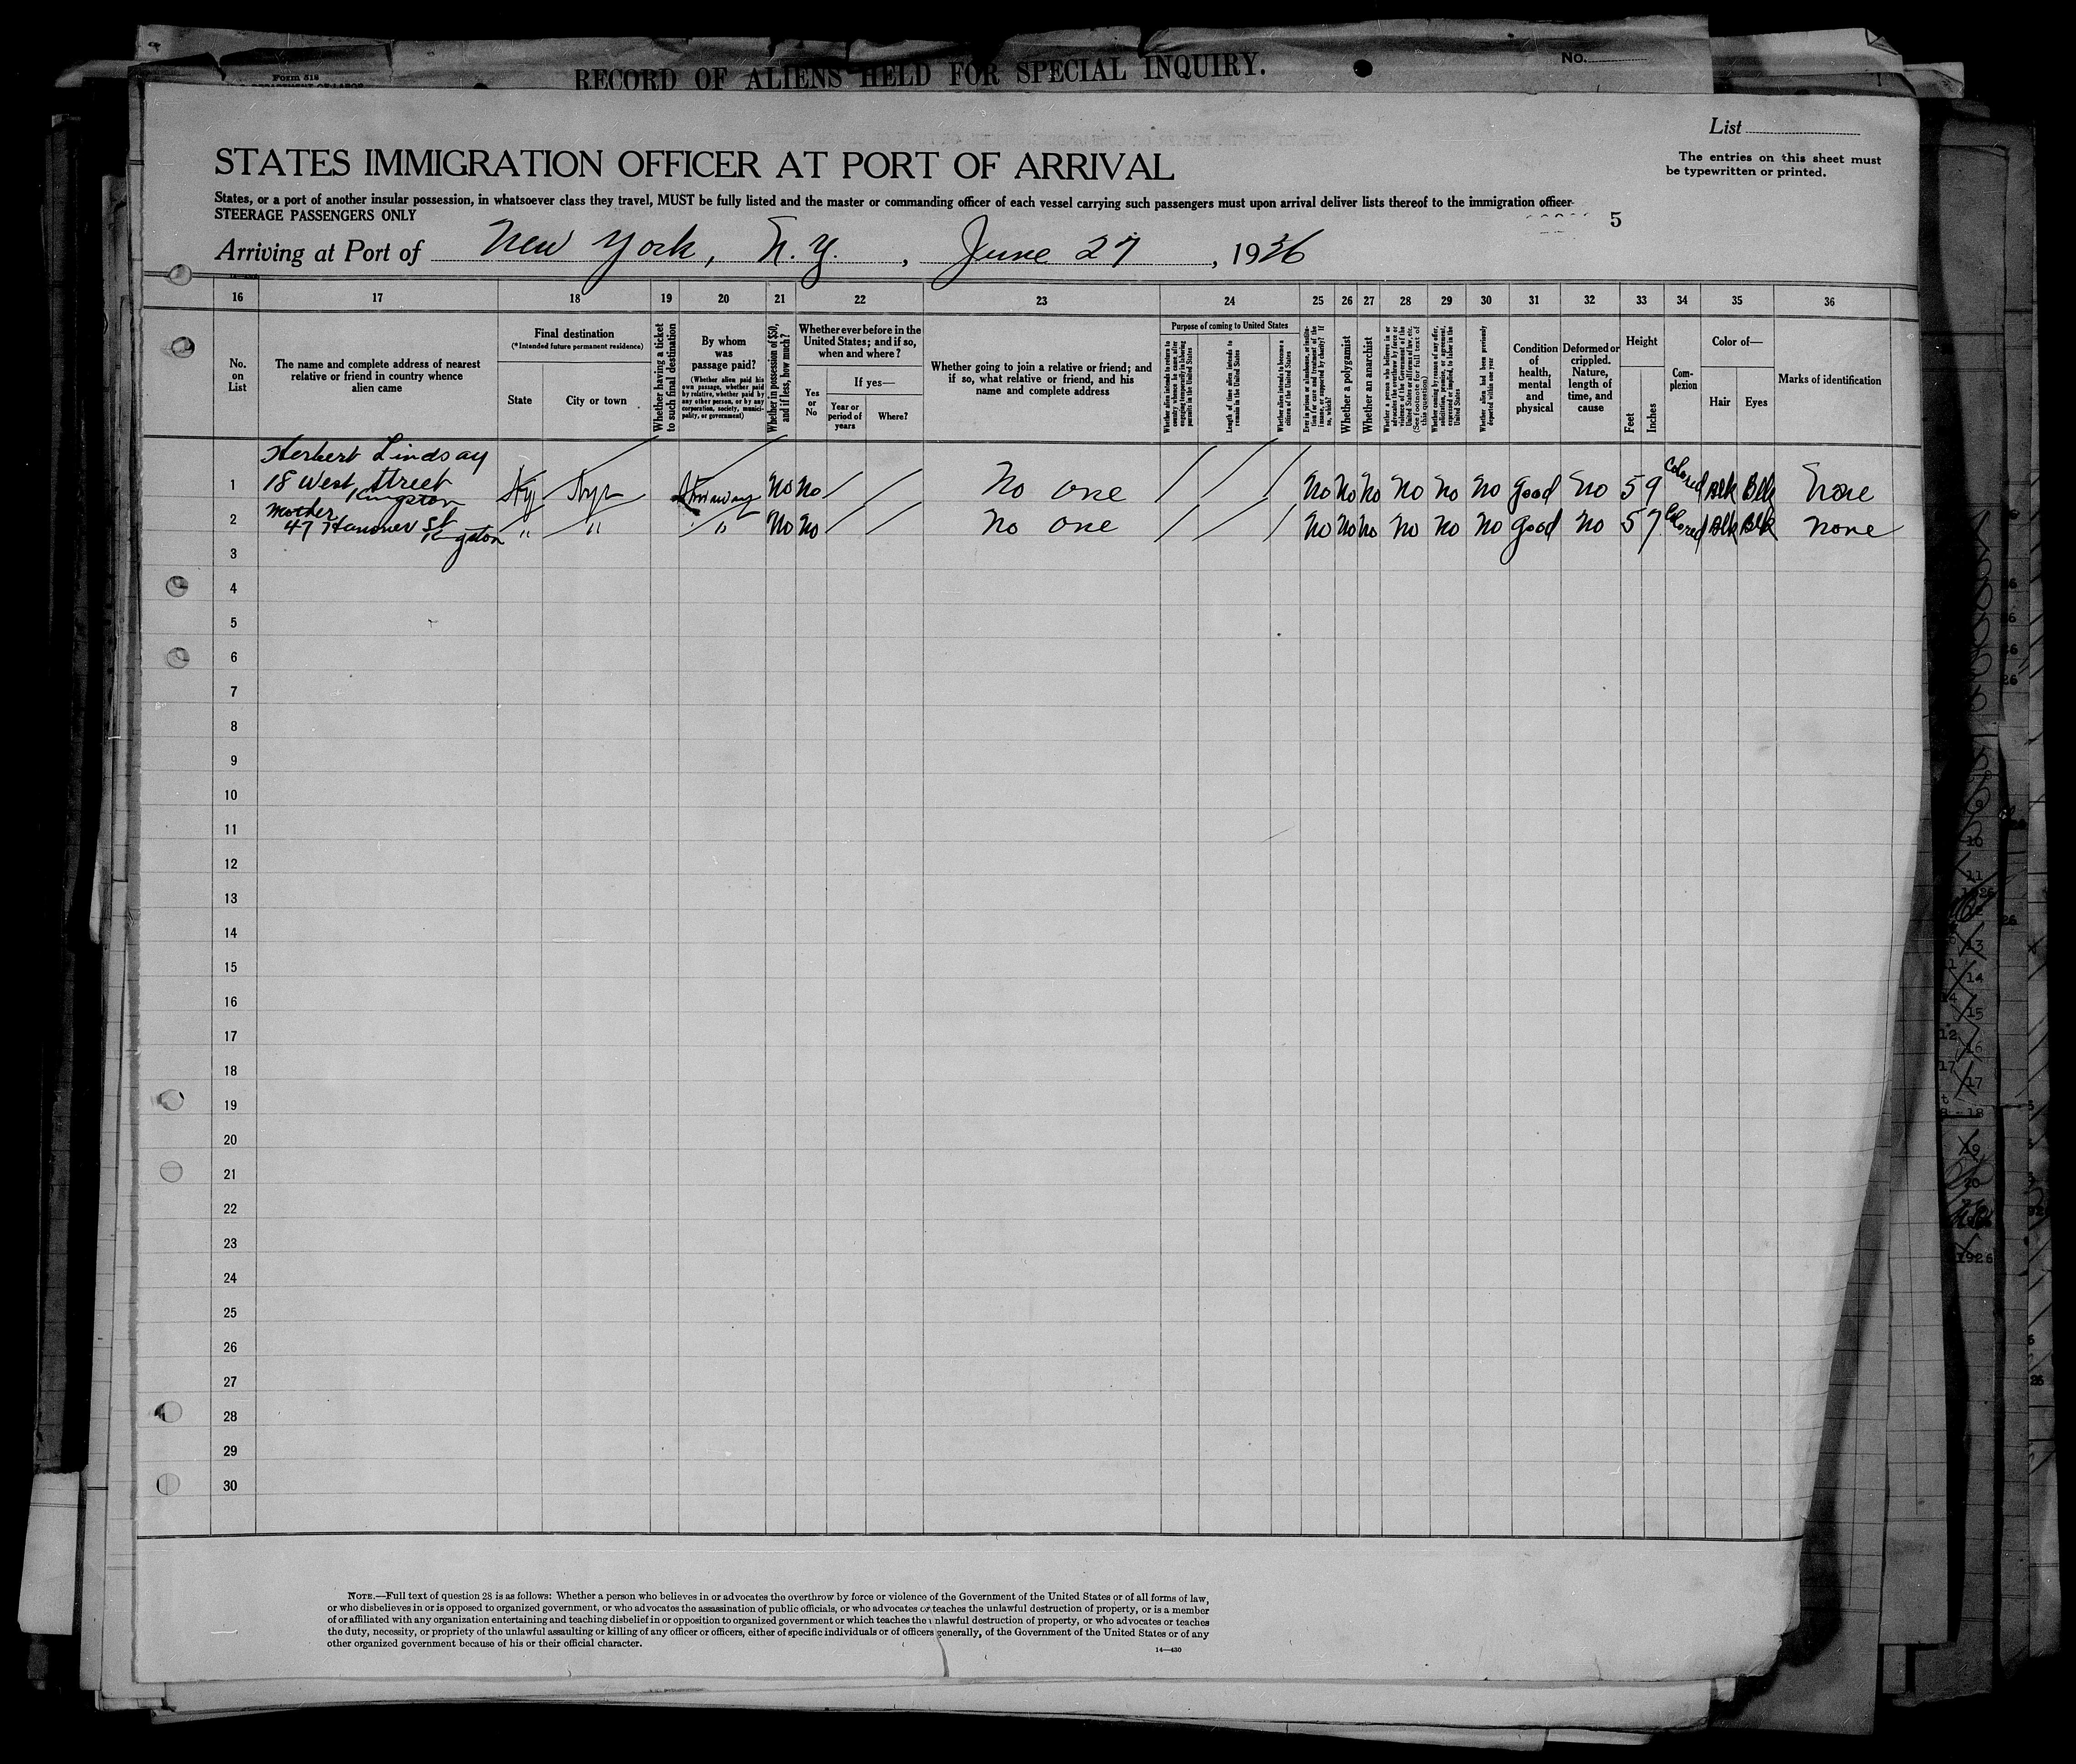 Form 518
RECORD OF ALIENS HELD FOR SPECIAL INQUIRY.
No.
List
STATES IMMIGRATION OFFICER AT PORT OF ARRIVAL
The entries on this sheet must
be typewritten or printed.
States, or a port of another insular possession, in whatsoever class they travel, MUST be fully listed and the master or commanding officer of each vessel carrying such passengers must upon arrival deliver lists thereof to the immigration officer
STEERAGE PASSENGERS ONLY
5
Arriving at Port of New York, N.Y. , June 27 , 1926
16 17 18 19 20 21 22 23 24 25 26 27 28 29 30 31 32 33 34 35 36
No. on List
The name and complete address of nearest relative or friend in country whence alien came
Final destination
(*Intended future permanent residence)
State
City or town
Whether having a ticket to such final destination
By whom was passage paid?
(Whether alien paid his own passage, whether paid by relative, whether paid by any other person, or by any corporation, society, municipality, or government)
Whether in possession of $50, and if less, how much?
Whether ever before in the United States; and if so, when and where?
Yes or No
If yes—
Year or period of years
Where?
Whether going to join a relative or friend; and if so, what relative or friend, and his name and complete address
Purpose of coming to United States
Whether alien intends to return to country whence he came after engaging temporarily in laboring pursuits in the United States
Length of time alien intends to remain in the United States
Whether alien intends to become a citizen of the United States
Ever in prison or almshouse, or institution for care and treatment of the insane, or supported by charity? If so, which?
Whether a polygamist
Whether an anarchist
Whether a person who believes in or advocates the overthrow by force or violence of the Government of the United States or all forms of law, etc. (See footnote for full text of this question)
Whether coming by reason of any offer, solicitation, promise, or agreement, expressed or implied, to labor in the United States
Whether alien had been previously deported within one year
Condition of health, mental and physical
Deformed or crippled. Nature, length of time, and cause
Height
Feet
Inches
Complexion
Color of—
Hair
Eyes
Marks of identification
Herbert Lindsay
1 18 West Street No No No one No No No No No No good No 5 9 Colored Blk Blk None
Kingston
mother
2 47 Hanover St " " " No No No one No No No No No No good No 5 7 Colored Blk Blk none
Kingston
3
4
5
6
7
8
9
10
11
12
13
14
15
16
17
18
19
20
21
22
23
24
25
26
27
28
29
30
NOTE.—Full text of question 28 is as follows: Whether a person who believes in or advocates the overthrow by force or violence of the Government of the United States or of all forms of law,
or who disbelieves in or is opposed to organized government, or who advocates the assassination of public officials, or who advocates or teaches the unlawful destruction of property, or is a member
of or affiliated with any organization entertaining and teaching disbelief in or opposition to organized government or which teaches the unlawful destruction of property, or who advocates or teaches
the duty, necessity, or propriety of the unlawful assaulting or killing of any officer or officers, either of specific individuals or of officers generally, of the Government of the United States or of any
other organized government because of his or their official character.
14—430